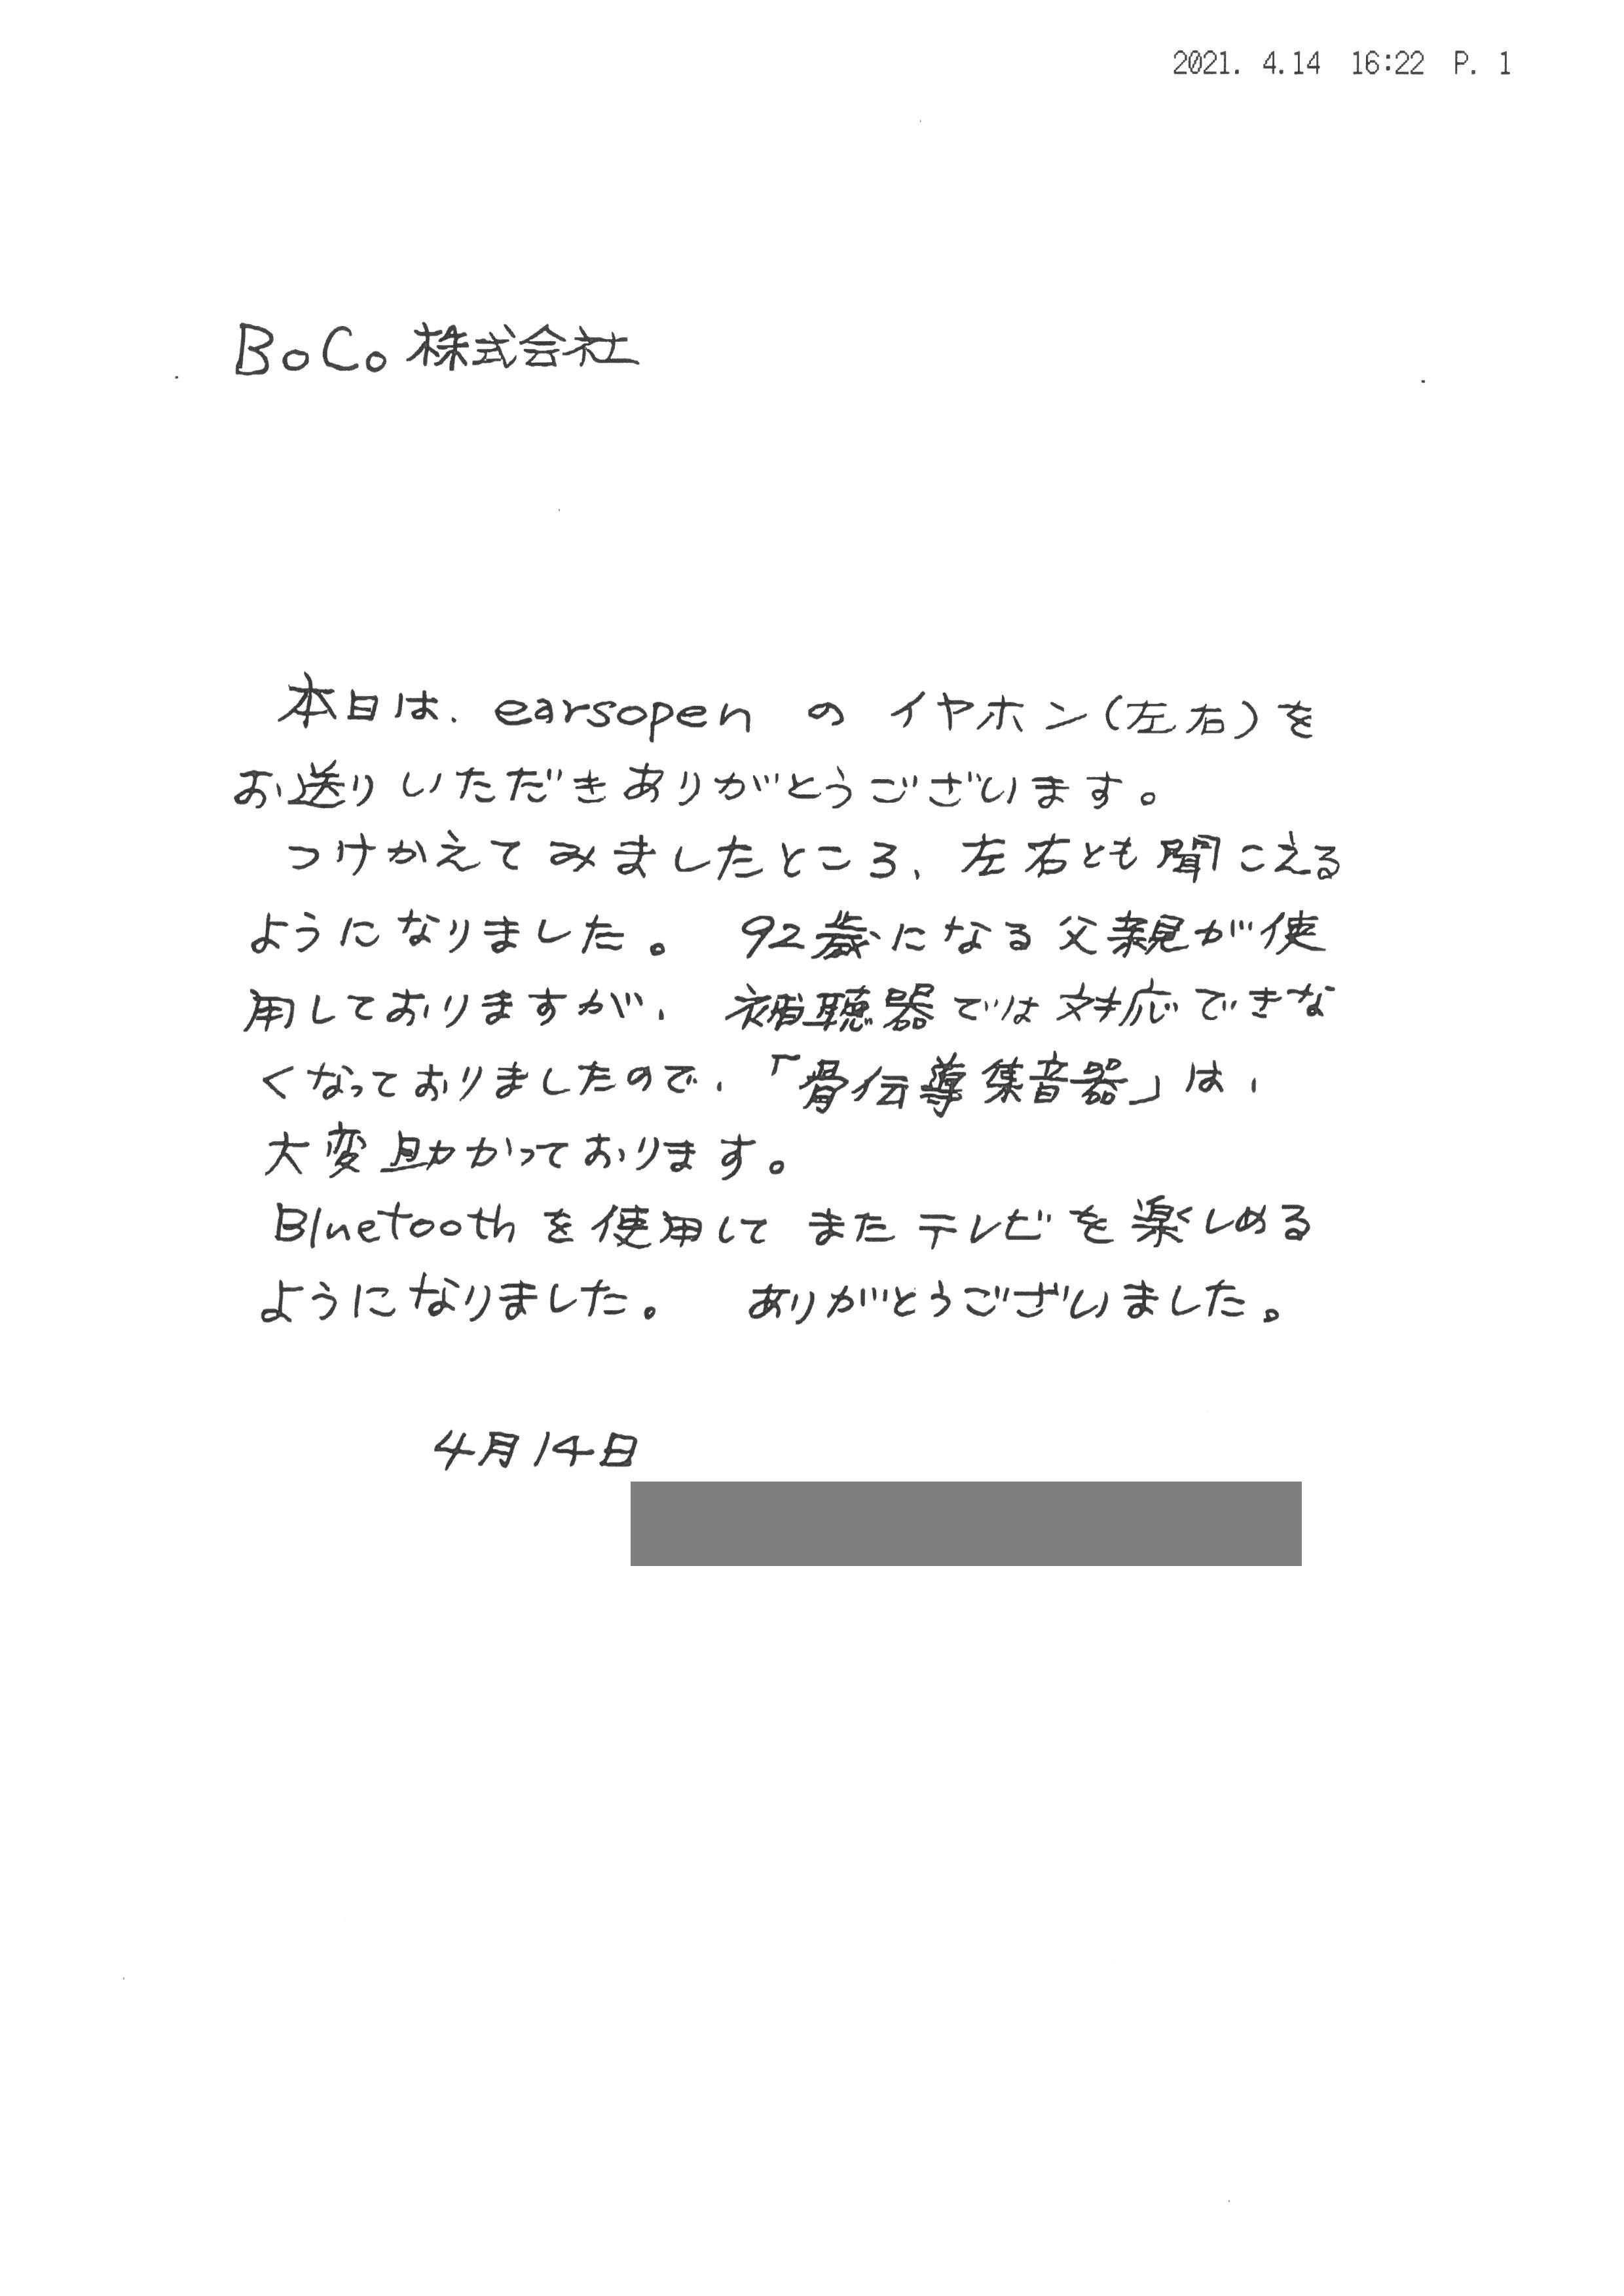 2021. 4.14 16:22 P. 1
BoCo株式会社
本日は、earsopen の イヤホン(左右)を
お送りいただきありがとうございます。
つけかえてみましたところ、左右とも聞こえる
ようになりました。 92歳になる父親が使
用しておりますが、補聴器では対応できな
くなっておりましたので、「骨伝導集音器」は、
大変助かっております。
Bluetoothを使用して またテレビを楽しめる
ようになりました。 ありがとうございました。
4月14日